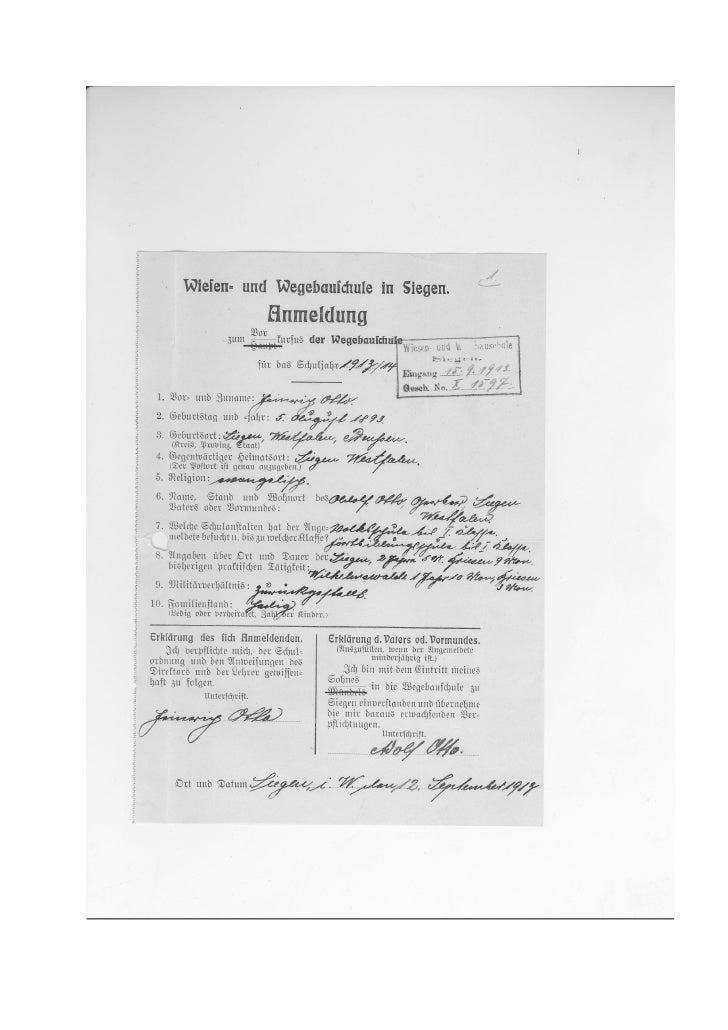 1.
Wiesen- und Wegebauschule in Siegen.
Anmeldung
Vor
zum Haupt-kursus der Wegebauschule
für das Schuljahr 1913/14
Wiesen- und W bauschule
Siegen.
Eingang 15.9.1913.
Gesch. No. X 1597
1. Vor- und Zuname: Heinrich Otto.
2. Geburtstag und -jahr: 5. August 1893.
3. Geburtsort: Siegen, Westfalen, Preußen.
(Kreis, Provinz, Staat)
4. Gegenwärtiger Heimatsort: Siegen Westfalen.
(Der Postort ist genau anzugeben.)
5. Religion: evangelisch.
6. Name, Stand und Wohnort des Adolf Otto, Gerber, Siegen
Vaters oder Vormundes: Westfalen.
7. Welche Schulanstalten hat der Ange- Volksschule bis I. Klasse.
meldete besucht u. bis zu welcher Klasse? Fortbildungsschule bis I. Klasse.
8. Angaben über Ort und Dauer der Siegen, 2 Jahre 5 M. 9 Mon.
bisherigen praktischen Tätigkeit: Wilhelmswalde 1 Jahr 10 Mon,
3 Mon.
9. Militärverhältnis: zurückgestellt.
10. Familienstand: ledig
(Ledig oder verheiratet, Zahl der Kinder.)
Erklärung des sich Anmeldenden.
Ich verpflichte mich, der Schul-
ordnung und den Anweisungen des
Direktors und der Lehrer gewissen-
haft zu folgen.
Unterschrift.
Heinrich Otto
Erklärung d. Vaters od. Vormundes.
(Auszufüllen, wenn der Angemeldete
minderjährig ist.)
Ich bin mit dem Eintritt meines
Sohnes
Mündels in die Wegebauschule zu
Siegen einverstanden und übernehme
die mir daraus erwachsenden Ver-
pflichtungen.
Unterschrift.
Adolf Otto.
Ort und Datum Siegen, i. W. den 12. September 1913